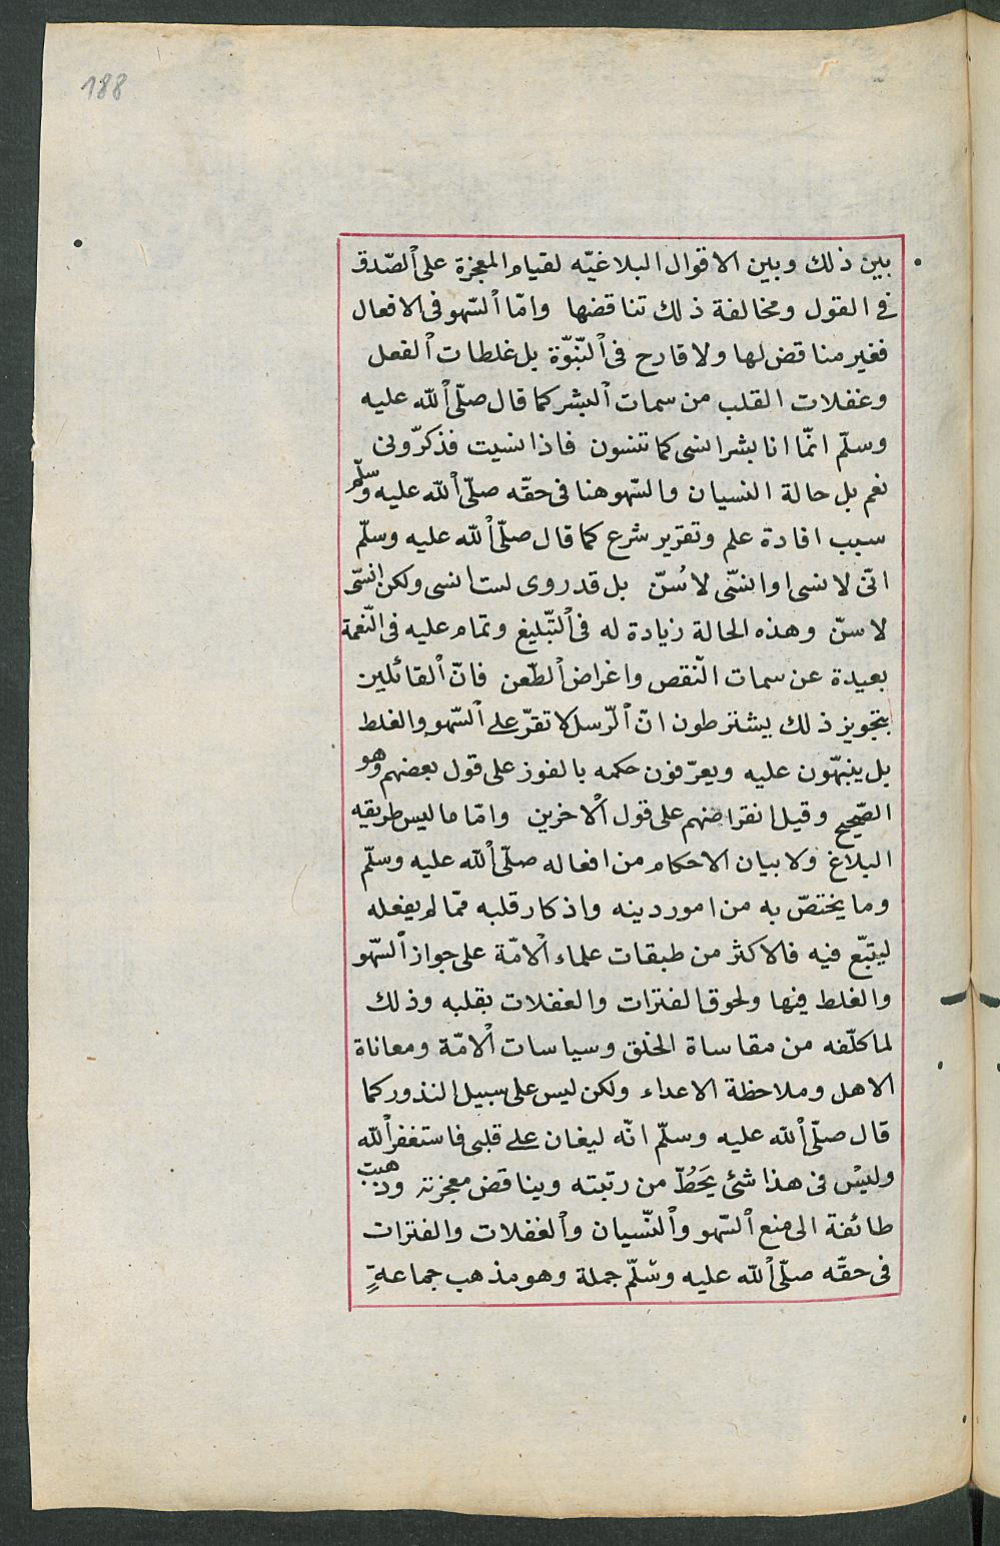 188
بين ذلك وبين الاقوال البلاغيّه لقيام المعجزة على ٱلصّدق
فى القول ومخالفة ذلك تناقضها وامّا ٱلسّهو فى الافعال
فغير مناقض لها ولا قادح فى ٱلنّبوّة بل غلطات ٱلفعل
وغفلات القلب من سمات ٱلبشر كما قال صلّى ٱلله عليه
وسلّم انّما انا بشر انسى كما تنسون فاذا نسيت فذكّرونى
نعم بل حالة النسيان والسّهو هنا فى حقّه صلّى ٱلله عليه وسلّم
سبب افادة علم وتقرير شرع كما قال صلّى ٱلله عليه وسلّم
انّى لانسى او انسّى لاسُنّ بل قد روى لست انسى ولكن انسّى
لاسنّ وهذه الحالة زيادة له فى ٱلتّبليغ وتمام عليه فى النّعمة
بعيدة عن سمات النّقص واغراض ٱلطّعن فانّ ٱلقائلين
بتجويز ذلك يشترطون انّ ٱلرّسل لا تقرّ على ٱلسّهو والغلط
بل ينبهّون عليه ويعرّفون حكمه بالفوز على قول بعضهم وهو
الصّحيح وقيل انقراضهم على قول ٱلاخرين وامّا ما ليس طريقه
البلاغ ولا بيان الاحكام من افعاله صلّى ٱلله عليه وسلّم
وما يختصّ به من امور دينه واذكار قلبه ممّا لم يفعله
ليتبّع فيه فالاكثر من طبقات علماء ٱلامّة على جواز ٱلسّهو
والغلط فيها ولحوق الفترات والغفلات بقلبه وذلك
لما كلّفه من مقاساة الخلق وسياسات ٱلامّة ومعاناة
الاهل وملاحظة الاعداء ولكن ليس على سبيل النذور كما
قال صلّى ٱلله عليه وسلّم انّه ليغان على قلبى فاستغفر ٱلله
وليس فى هذا شئ يَحَطُّ من رتبته ويناقض معجزته وذهبت
طائفة الى منع ٱلسّهو وٱلنّسيان وٱلغفلات والفترات
فى حقّه صلّى ٱلله عليه وسّلّم جملة وهو مذهب جماعةٍ